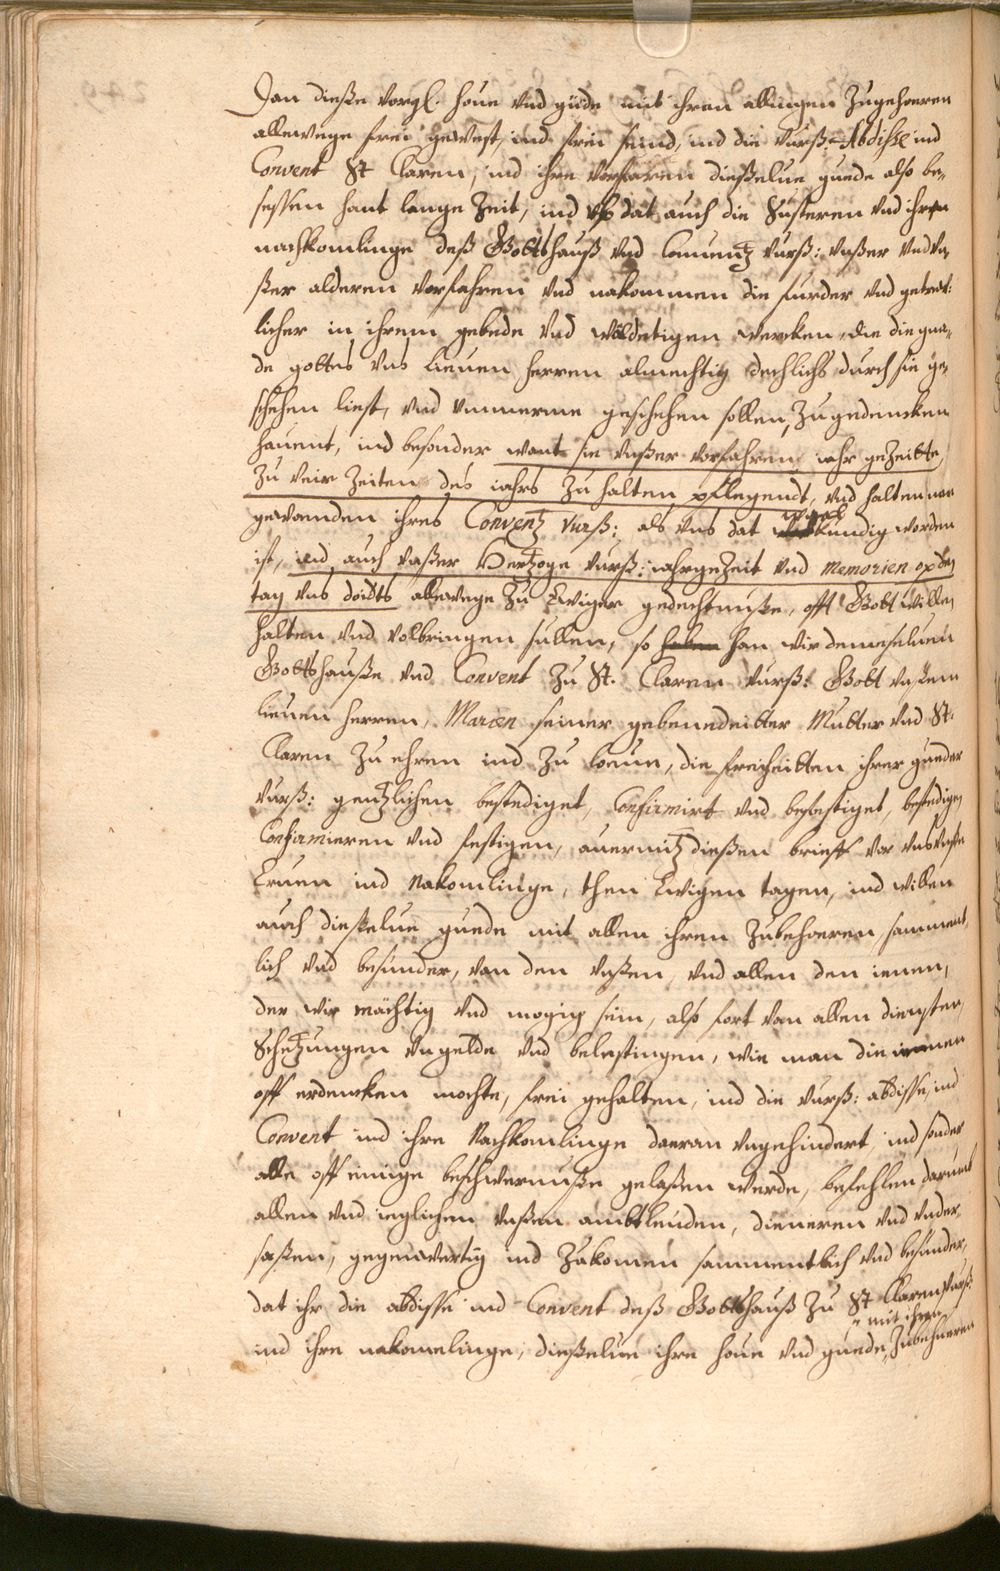 Dan dieße vorgl. houe vnd güde mit ihren allingen Zugehoeren
allewege frei gewest, ind frei seind, ind die vurß: Abdiße ind
Convent St Claren, ind ihre Vorfaren dießelue guede also be-
sessen hant lange Zeit, ind vf dat auch die Susteren vnd ihren
nachkomlinge deß Gottshauß vnd Conuentz vurß: vnßer vnd vn-
ßer alderen Vorfahren vnd nakommen die furder vnd getrew-
licher in ihrem gebede vnd wöldetigen wercken, die die gna-
de gottes vns lieuen herren almechtig dechlichs durch sie ge-
schehen liest, vnd vmmerme geschehen sollen, Zugedencken
hauent, ind besonder want sie vnßer vorfahren jahr geZeitte,
Zu veir Zeiten des jahrs Zu halten pflegendt, vnd halten nae
gewanden ihres Conventz vurß: als vns dat kundig worden
ist, ind auch vnßer Hertzoge vurß: jahrgeZeit vnd Memorien op den
tag vns doidts allewege Zu Ewiger gedechtnuße, offt Gott willen
halten vnd volbringen sullen, so haben han wir demeseluen
Gottshauße vnd Convent Zu St. Claren vurß: Gott vnßem
lieuen herren, Marien seiner gebenedeitter Mutter vnd St.
Claren Zu ehren ind Zu loeue, die freiheitten ihrer gueder
vurß: gentzlichen bestediget, Confirmirt vnd befestiget, bestedigen
Confirmieren vnd festigen, auermitz dießen brieff vor vns vnße
Eruen ind Nakomlinge, then Ewigen tagen, ind willen
auch dießelue guede mit allen ihren Zubehoeren, samment-
lich vnd besunder, van den vnßen, vnd allen den jenen,
der wir mächtig vnd mogig sein, also fort van allen diensten,
Schetzungen vngelde vnd belestingen, wie man die immer
off erdencken mochte, frei gehalten, ind die vurß: abdisse, ind
Convent ind ihre Nachkomlinge daeran vngehindert, ind sonder
alle off einige beschwernuße gelaßen werde, befehlen darumb
allen vnd ieglichen vnßen ambtleuden, dieneren vnd vnder-
saßen, gegenwertig ind Zukomen sammentlich vnd besunder,
dat ihr die abdisse ind Convent deß Gottshauß Zu St Claren vurß
mit ihren
ind ihre nakomelinge, dießelue ihre houe vnd guede, Zubehueren